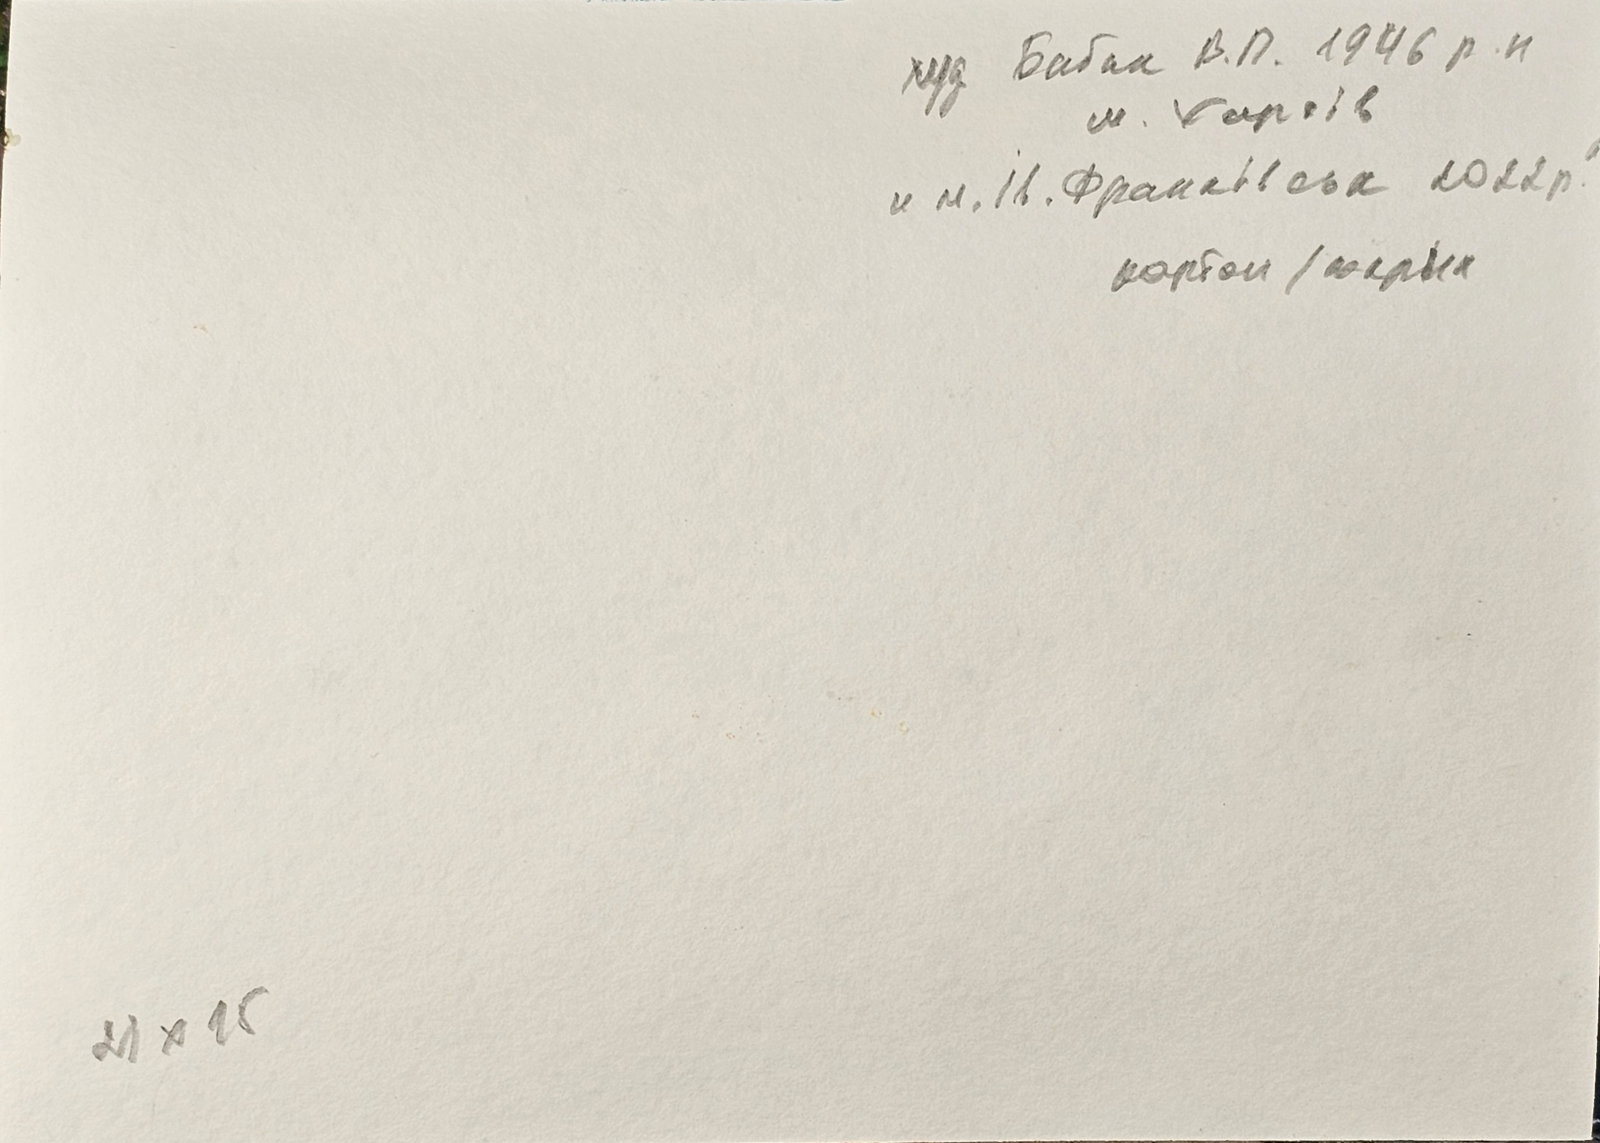 худ Бабак В.П. 1946 р.н
м. Харків
н м. Ів. Франківськ 2022р.
картон / акрил
21 х 15